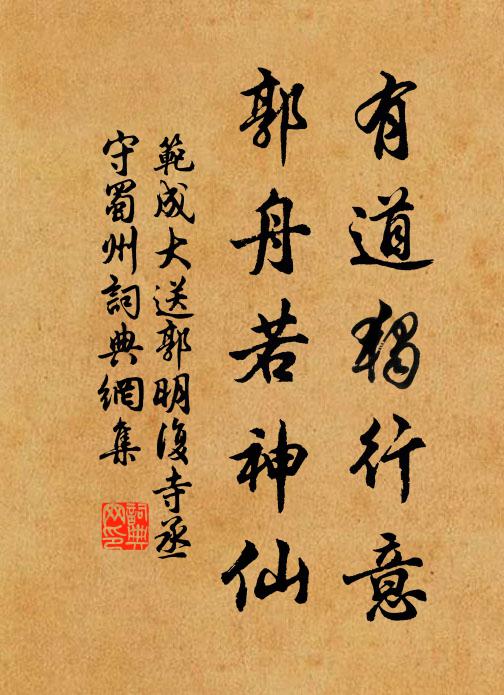 有道獨行意
郭舟若神仙
範成大送郭明復寺丞
守蜀州詞典網集
詞典
网印